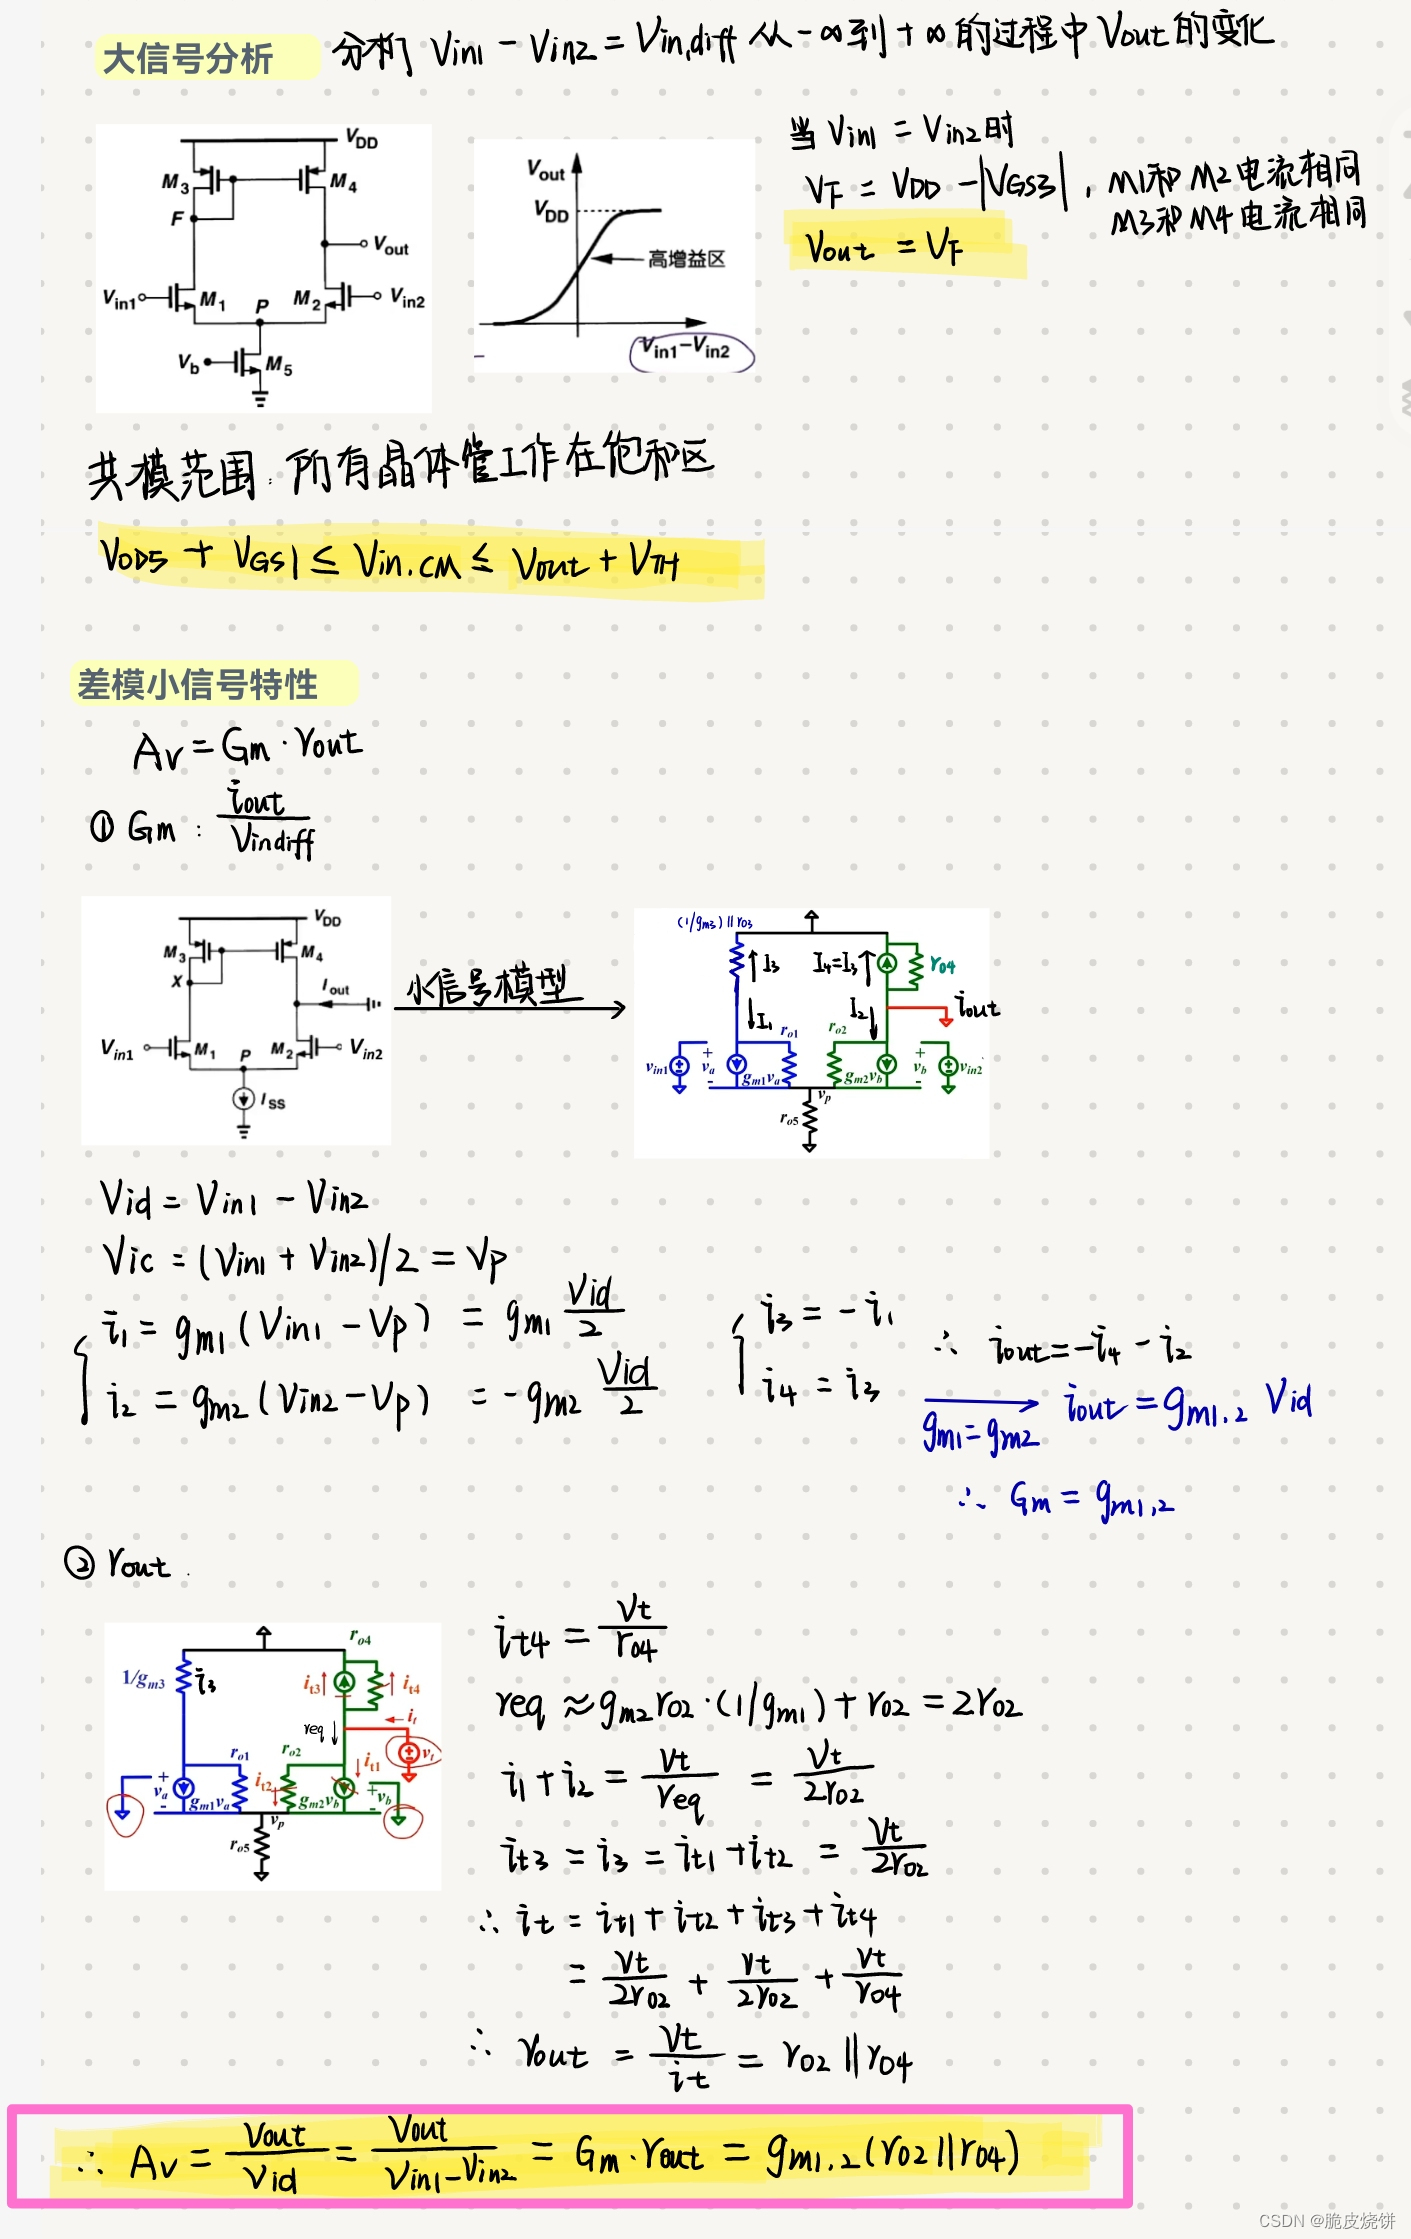 大信号分析 分析 Vin1 - Vin2 = Vin,diff 从 -∞ 到 +∞ 的过程中 Vout 的变化
VDD
M3
M4
F
Vout
Vin1
M1
P
M2
Vin2
Vb
M5
Vout
VDD
高增益区
Vin1-Vin2
当 Vin1 = Vin2时
VF = VDD - |VGS3| , M1和M2电流相同
M3和M4电流相同
Vout = VF
共模范围: 所有晶体管工作在饱和区
VOD5 + VGS1 ≤ Vin.CM ≤ Vout + VTH
差模小信号特性
Av = Gm · rout
① Gm : iout / Vindiff
VDD
M3
M4
X
Iout
Vin1
M1
P
M2
Vin2
ISS
小信号模型
(1/gm3) || ro3
I3
I4=I3
ro4
I1
I2
iout
ro1
ro2
vin1
+ va -
gm1va
gm2vb
+ vb -
vin2
vp
ro5
Vid = Vin1 - Vin2
Vic = (Vin1 + Vin2)/2 = Vp
i1 = gm1 (Vin1 - Vp) = gm1 Vid/2
i2 = gm2 (Vin2 - Vp) = -gm2 Vid/2
i3 = -i1
i4 = i3
∴ iout = -i4 - i2
gm1 = gm2 iout = gm1,2 Vid
∴ Gm = gm1,2
② rout
ro4
1/gm3
i3
it3
it4
req
it
vt
ro1
ro2
it2
it1
+ va -
gm1va
gm2vb
+ vb -
vp
ro5
it4 = Vt/ro4
req ≈ gm2 ro2 · (1/gm1) + ro2 = 2ro2
i1 + i2 = Vt/req = Vt/2ro2
it3 = i3 = it1 + it2 = Vt/2ro2
∴ it = it1 + it2 + it3 + it4
= Vt/2ro2 + Vt/2ro2 + Vt/ro4
∴ rout = Vt/it = ro2 || ro4
∴ Av = Vout/Vid = Vout/Vin1-Vin2 = Gm · rout = gm1,2 (ro2 || ro4)
CSDN @脆皮烧饼